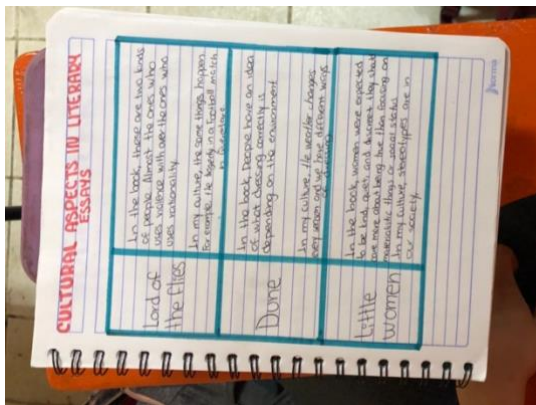 CULTURAL ASPECTS IN LITERARY
ESSAYS
Lord of
the flies
In the book, these are two kinds
of people. Almost the ones who
uses violence with over the ones who
uses rationality.
In my culture, the same things happen
For example, the in a football match
Dune
In the book, People have an idea
of what dressing correctly is
depending on the environment
In my culture, the weather changes
every season and we have different ways
of dressing
Little
Women
In the book, women were expected
to be kind, quiet, and discreet they shall
care more about being love than focusing on
materialistic things or economic status
In my culture stereotypes are in
our society.